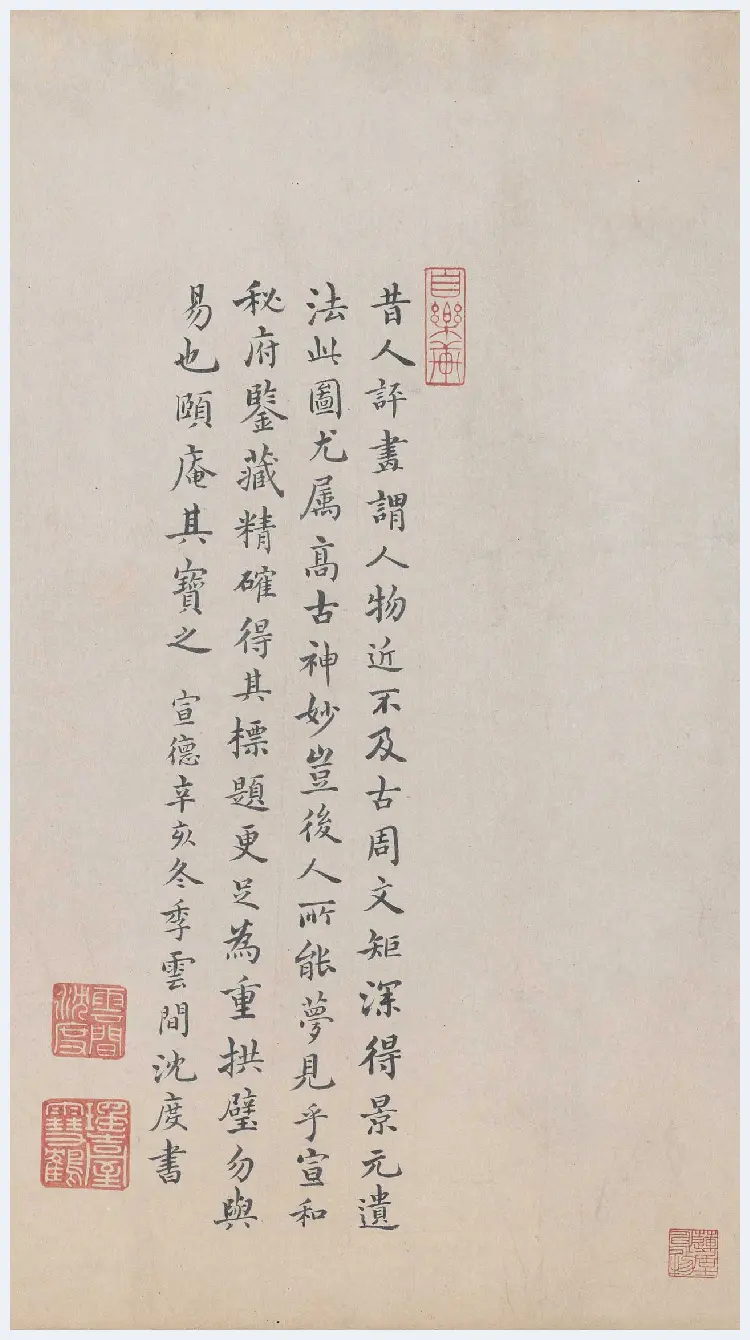 昔人評畫謂人物近不及古周文矩深得景元遺
法此圖尤属高古神妙豈後人所能夢見乎宣和
秘府鑒藏精確得其標題更足為重拱璧勿與
易也頤庵其寶之 宣德辛亥冬季雲間沈度書
雲間沈度